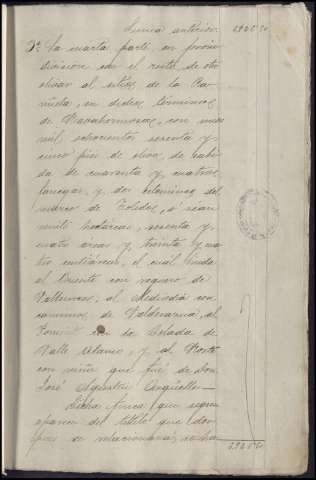 Suma anterior
3ª La cuarta parte, en proin-
division con el resto de otro
olivar al sitio de la Ca-
ñueta, en dichos términos
de Navahermosa, con unos
mil ochocientos sesenta y
cinco pies de olivo, de cabi-
da de cuarenta y cuatro
fanegas, y dos celemines del
marco de Toledo, ó sean
hectáreas, sesenta y
cuatro areas y treinta y cua-
tro centiáreas, el cual linda
al Oriente con reguero de
al Mediodía con
camino de al
Poniente con la Celada de
Valle y al Norte
con viña que fué de Don
José Agustin Argüelles.
Dicha finca, que segun
aparece del título que des-
pues se relacionará, se ha-